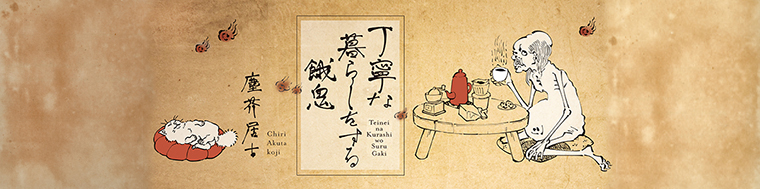 丁寧な
暮らしをする
餓鬼
Teinei
na
Kurashi
wo
Suru
Gaki
塵芥居士
Chiri
Akuta
koji